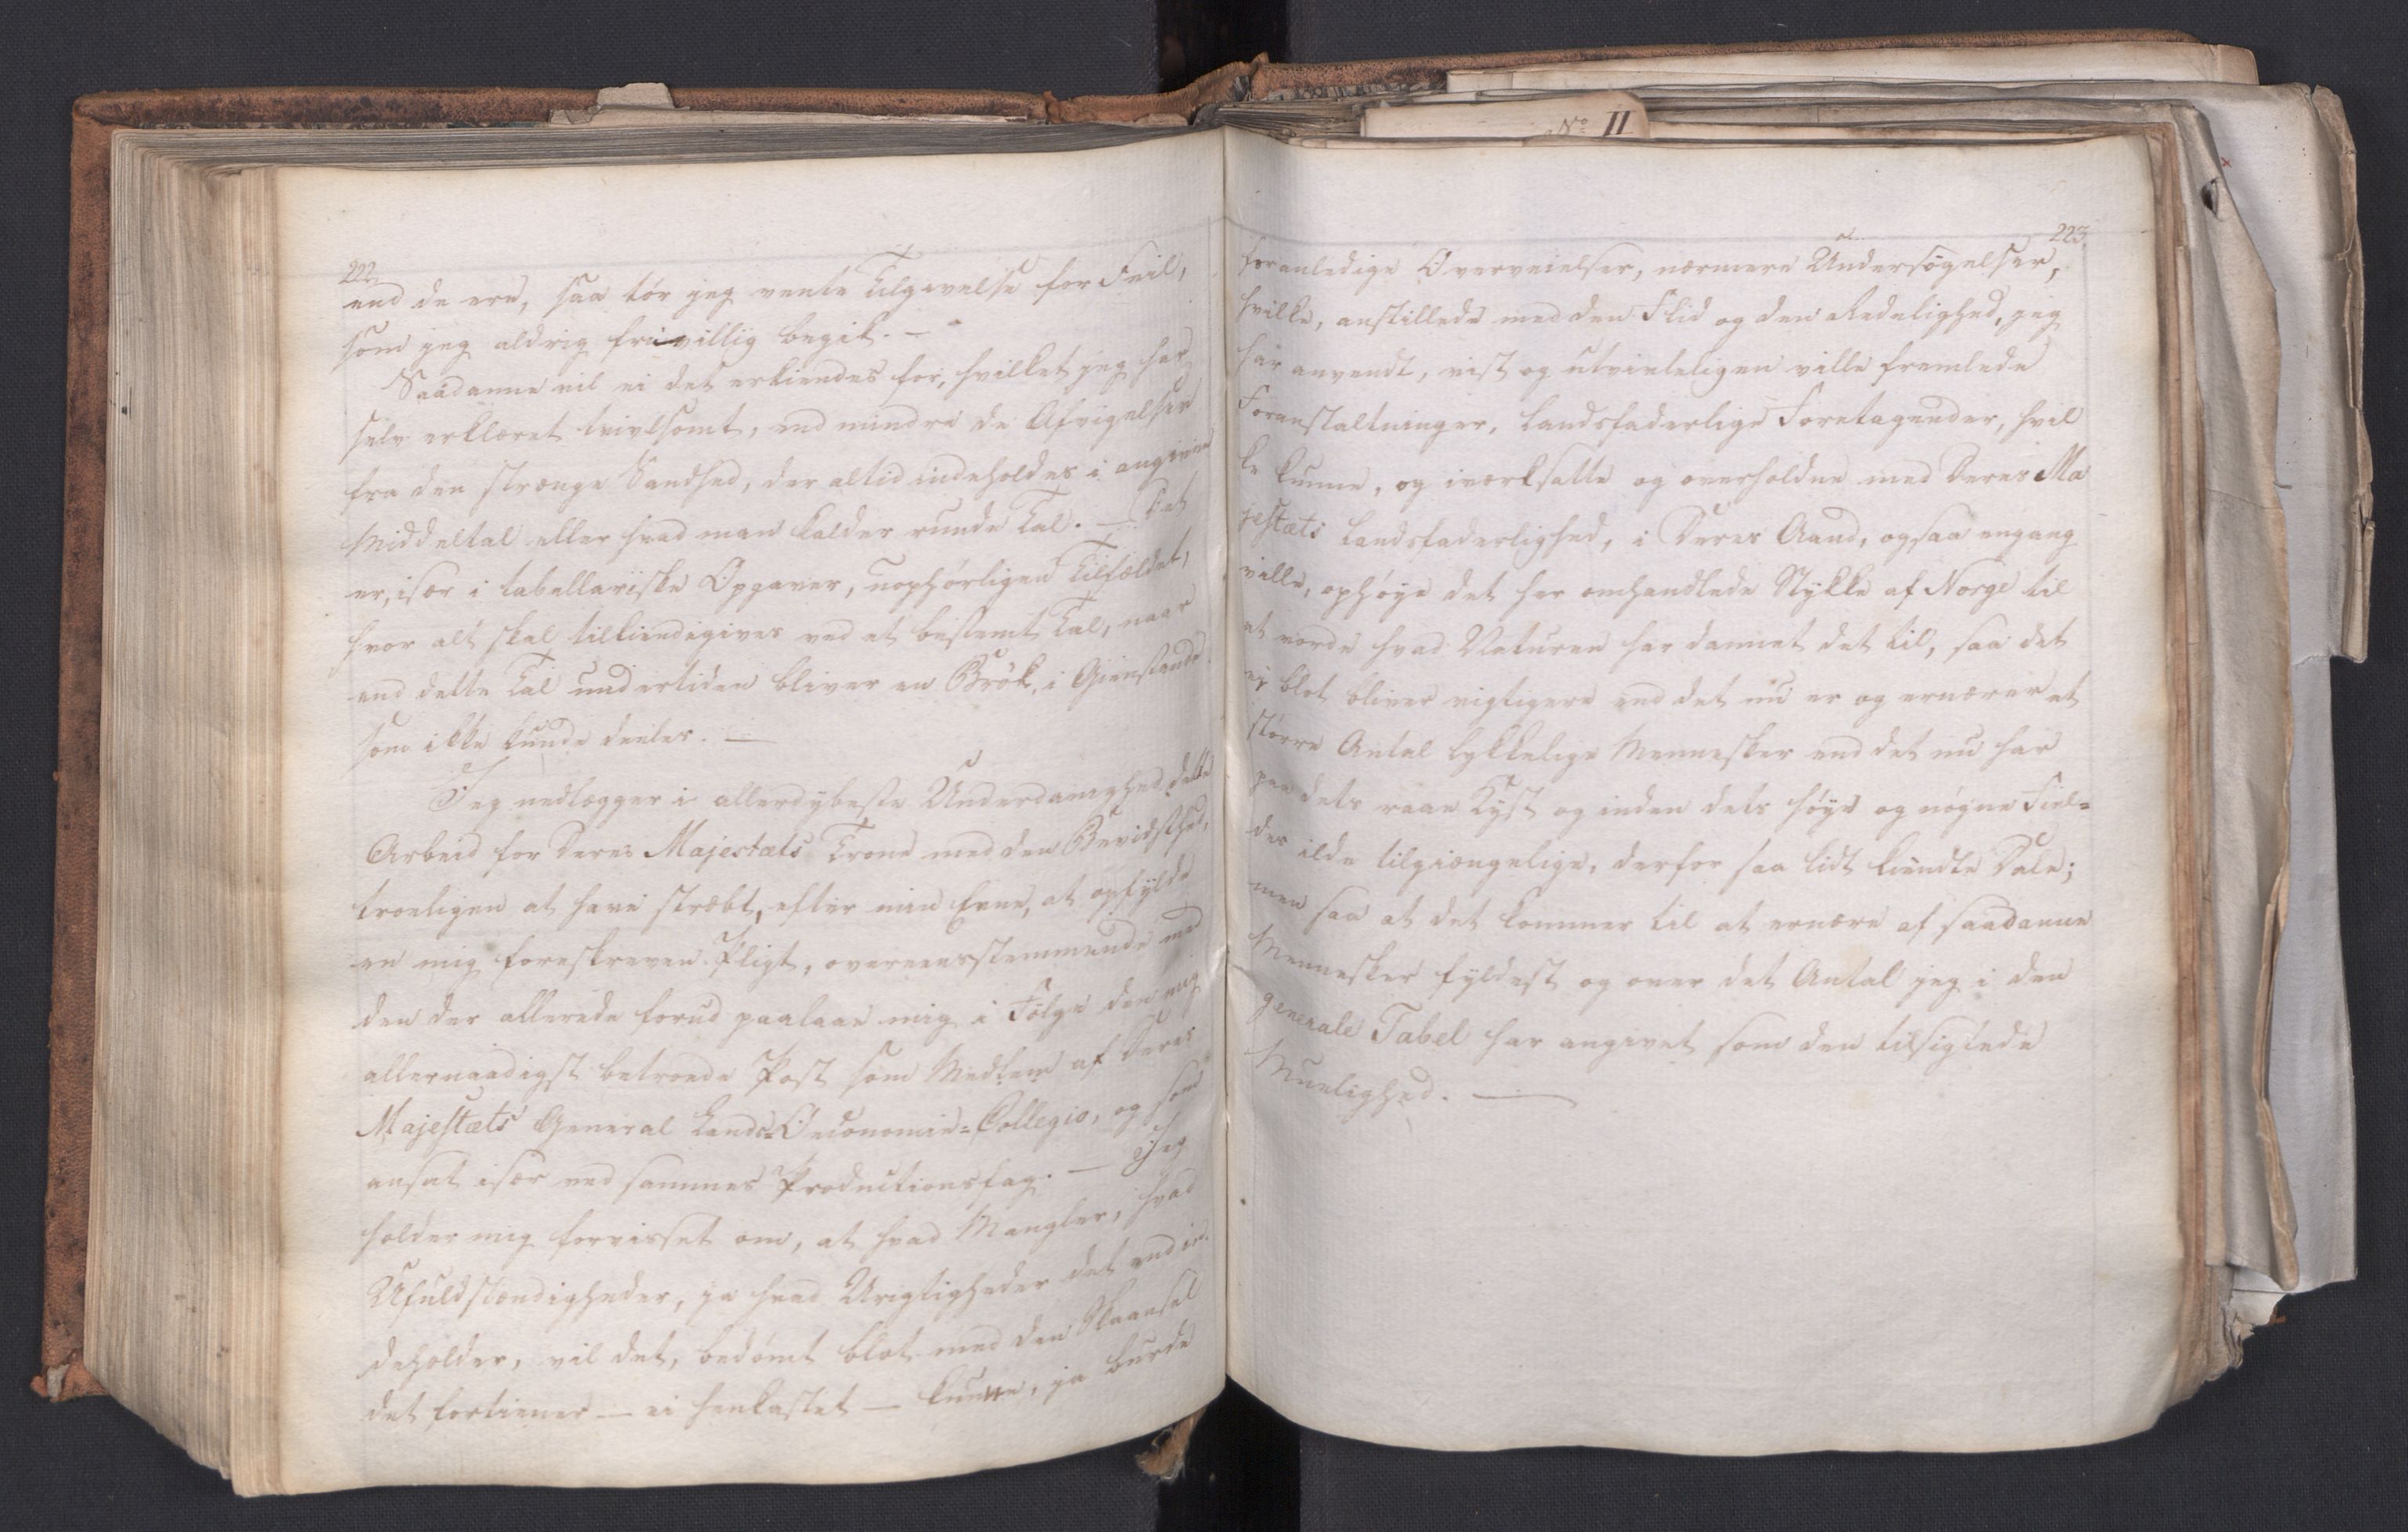 No II
222
end de ere, saa tør jeg vente Tilgivelse for Feil,
som jeg aldrig frivillig begik. —
Saadanne vil ei det erkiendes for, hvilket jeg har
selv erklæret tvivlsomt, end mindre de Afvigelser
fra den strænge Sandhed, der altid indeholdes i angivne
Middeltal eller hvad man kalder runde Tal. — Det
er, især i tabellariske Opgaver, uophørligen Tilfældet,
hvor alt skal tilkiendegives ved et bestemt Tal, naar
end dette Tal undertiden bliver en Brøk, i Gienstande
som ikke kunde deeles. —
Jeg nedlægger i allerdybeste Underdanighed dette
Arbeid for Deres Majestæts Trone med den Bevidsthed,
troeligen at have stræbt, efter min Evne, at opfylde
en mig foreskreven Pligt, overeensstemmende med
den der allerede forud paalaae mig i Følge den mig
allernaadigst betroede Post som Medlem af Deres
Majestæts General Lands-Oeconomie-Collegio, og som
ansat især ved sammes Productionsfag. — Jeg
holder mig forvisset om, at hvad Mangler, hvad
Ufuldstændigheder, ja hvad Urigtigheder det end in-
deholder, vil det, bedømt blot med den Skaansel
det fortiener — ei henkastet — kunne, ja burde
223
foranledige Overveielser, nærmere Undersøgelser,
hvilke, anstillede med den Flid og den Redelighed, jeg
har anvendt, vist og utvivleligen ville fremlede
Foranstaltninger, landsfaderlige Foretagender, hvil
ke kunne, og iværksatte og overholdne med Deres Ma
jestæts Landsfaderlighed, i Deres Aand, ogsaa engang
ville, ophøye det her omhandlede Stykke af Norge til
at vorde hvad Naturen har dannet det til, saa det
ej blot bliver vigtigere end det nu er og ernærer et
større Antal lykkelige Mennesker end det nu har
paa dets raae Kyst og inden dets høye og nøgne Fiel-
des ilde tilgiængelige, derfor saa lidt kiendte Dale;
men saa at det kommer til at ernære af saadanne
Mennesker fyldest og over det Antal jeg i den
generale Tabel har angivet som den tilsigtede
Muelighed. —